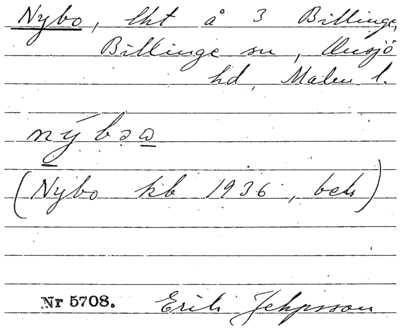 Nybo, lht å 3 Billinge,
Billinge sn, Onsjö
hd, Malm l.
nýboω
(Nybo kb 1936, beb)
Nr 5708. Erik Jeppsson